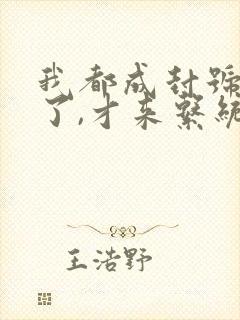 我都成封號
了,才来繫統
王浩野